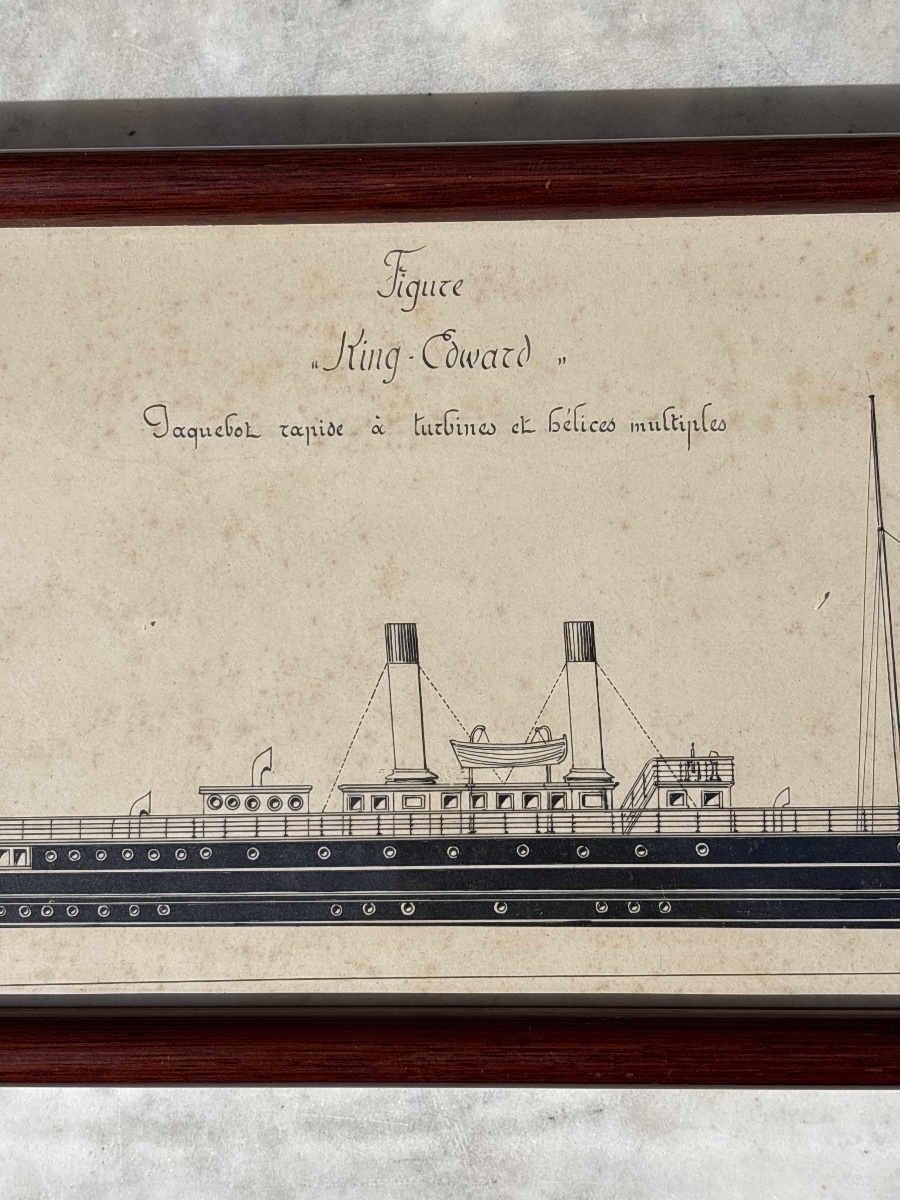 Figure
„ King - Edward „
Paquebot rapide à turbines et hélices multiples